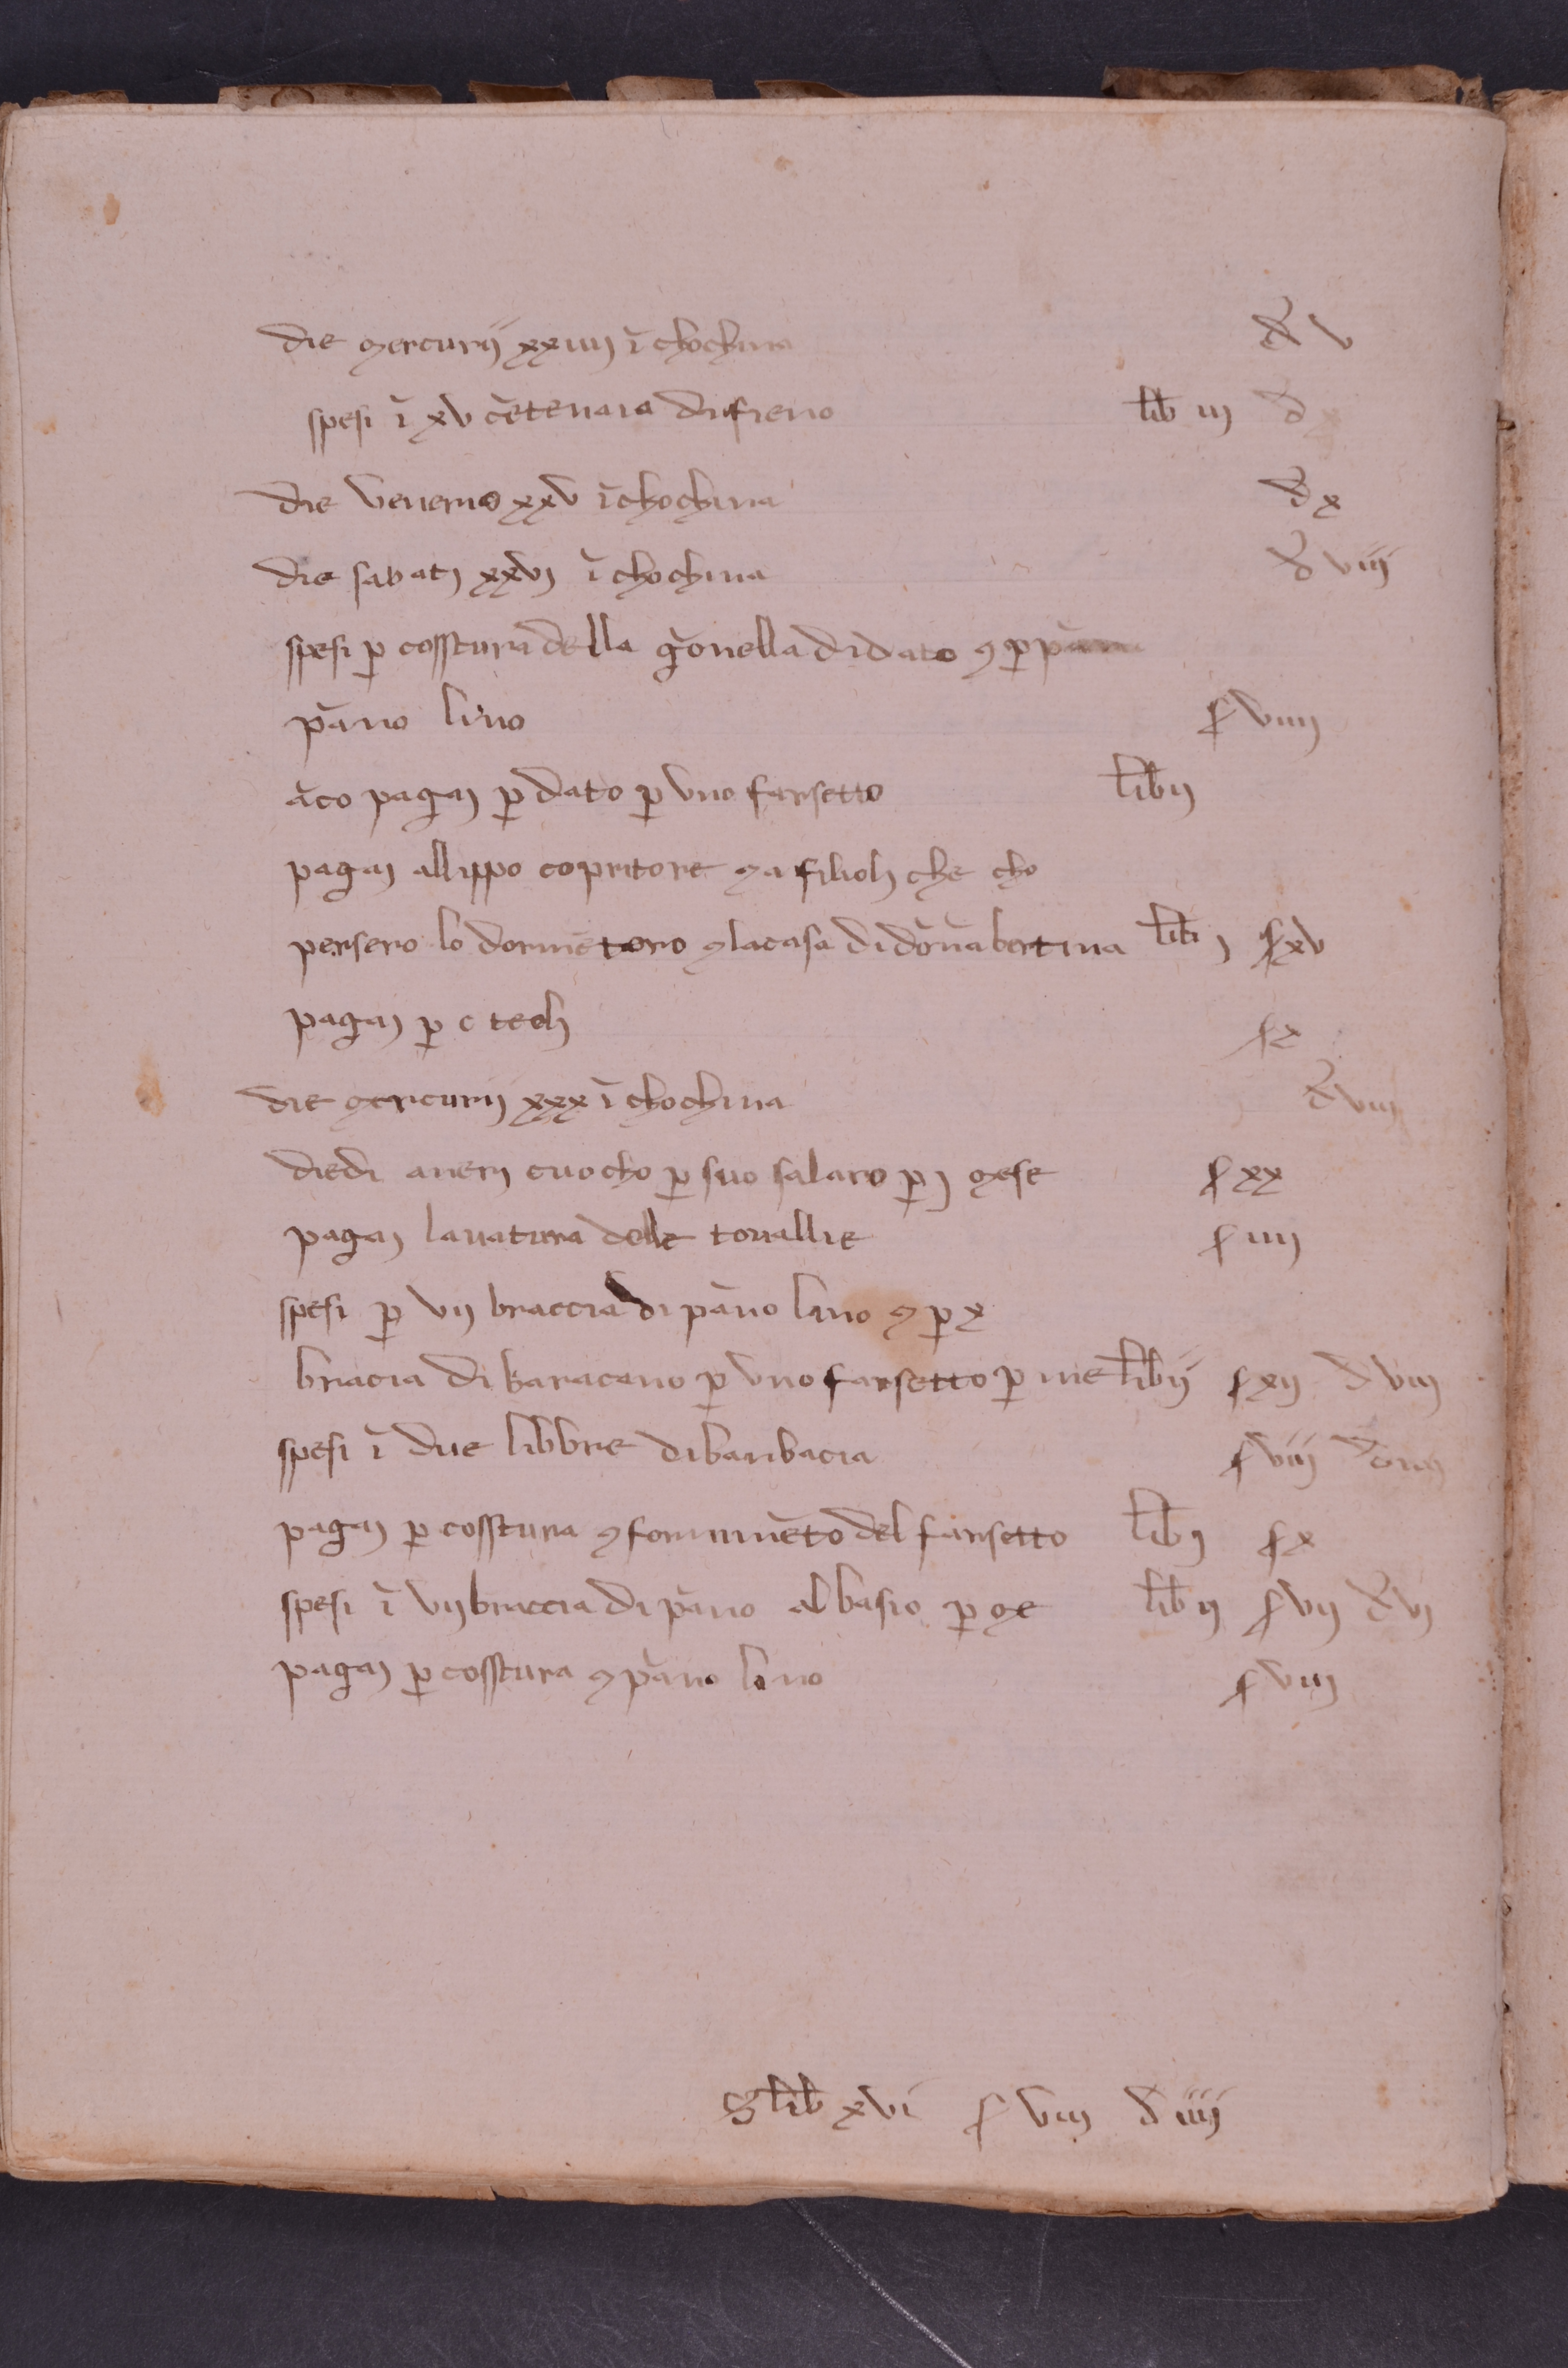 die mercurii xxiiij ĩ chochina d̃ v
spesi ĩ xv cẽtenaia di fieno lib iij d̃ x
die veneris xxv ĩ chochina d̃ x
die sabatj xxvj ĩ chochina d̃ viij
spesi p̱ cosstura della gõnella di dato ⁊ p̱ pãno
pãno lino ſ viiij
ãco pagaj p̱ dato p̱ uno farsetto lib ij
pagaj allippo copritore ⁊ a filiolj che cho
persero lo dormẽtoro ⁊ la casa di dõna bertina lib j ſ xv
pagaj p̱ c teolj ſ x
die mercurij xxx ĩ chochina d̃ viij
diedi a nerj cuocho p̱ suo salaro p̱ j mese ſ xx
pagaj lavatura delle tovallie ſ iiij
spesi p̱ vij braccia di pãno lino ⁊ p̱ x
bracia di baracano p̱ uno farsetto p̱ me lib ij ſ xij d̃ viij
spesi ĩ due libbre di banbacia ſ viij d̃ iiij
pagaj p̱ cosstura ⁊ fornimẽto del farsetto lib j ſ x
spesi ĩ vij braccia di pãno albasio p̱ me lib ij ſ vij d̃ vj
pagaj p̱ cosstura ⁊ pãno lino ſ viij
S lib xvi ſ viij d̃ iiij